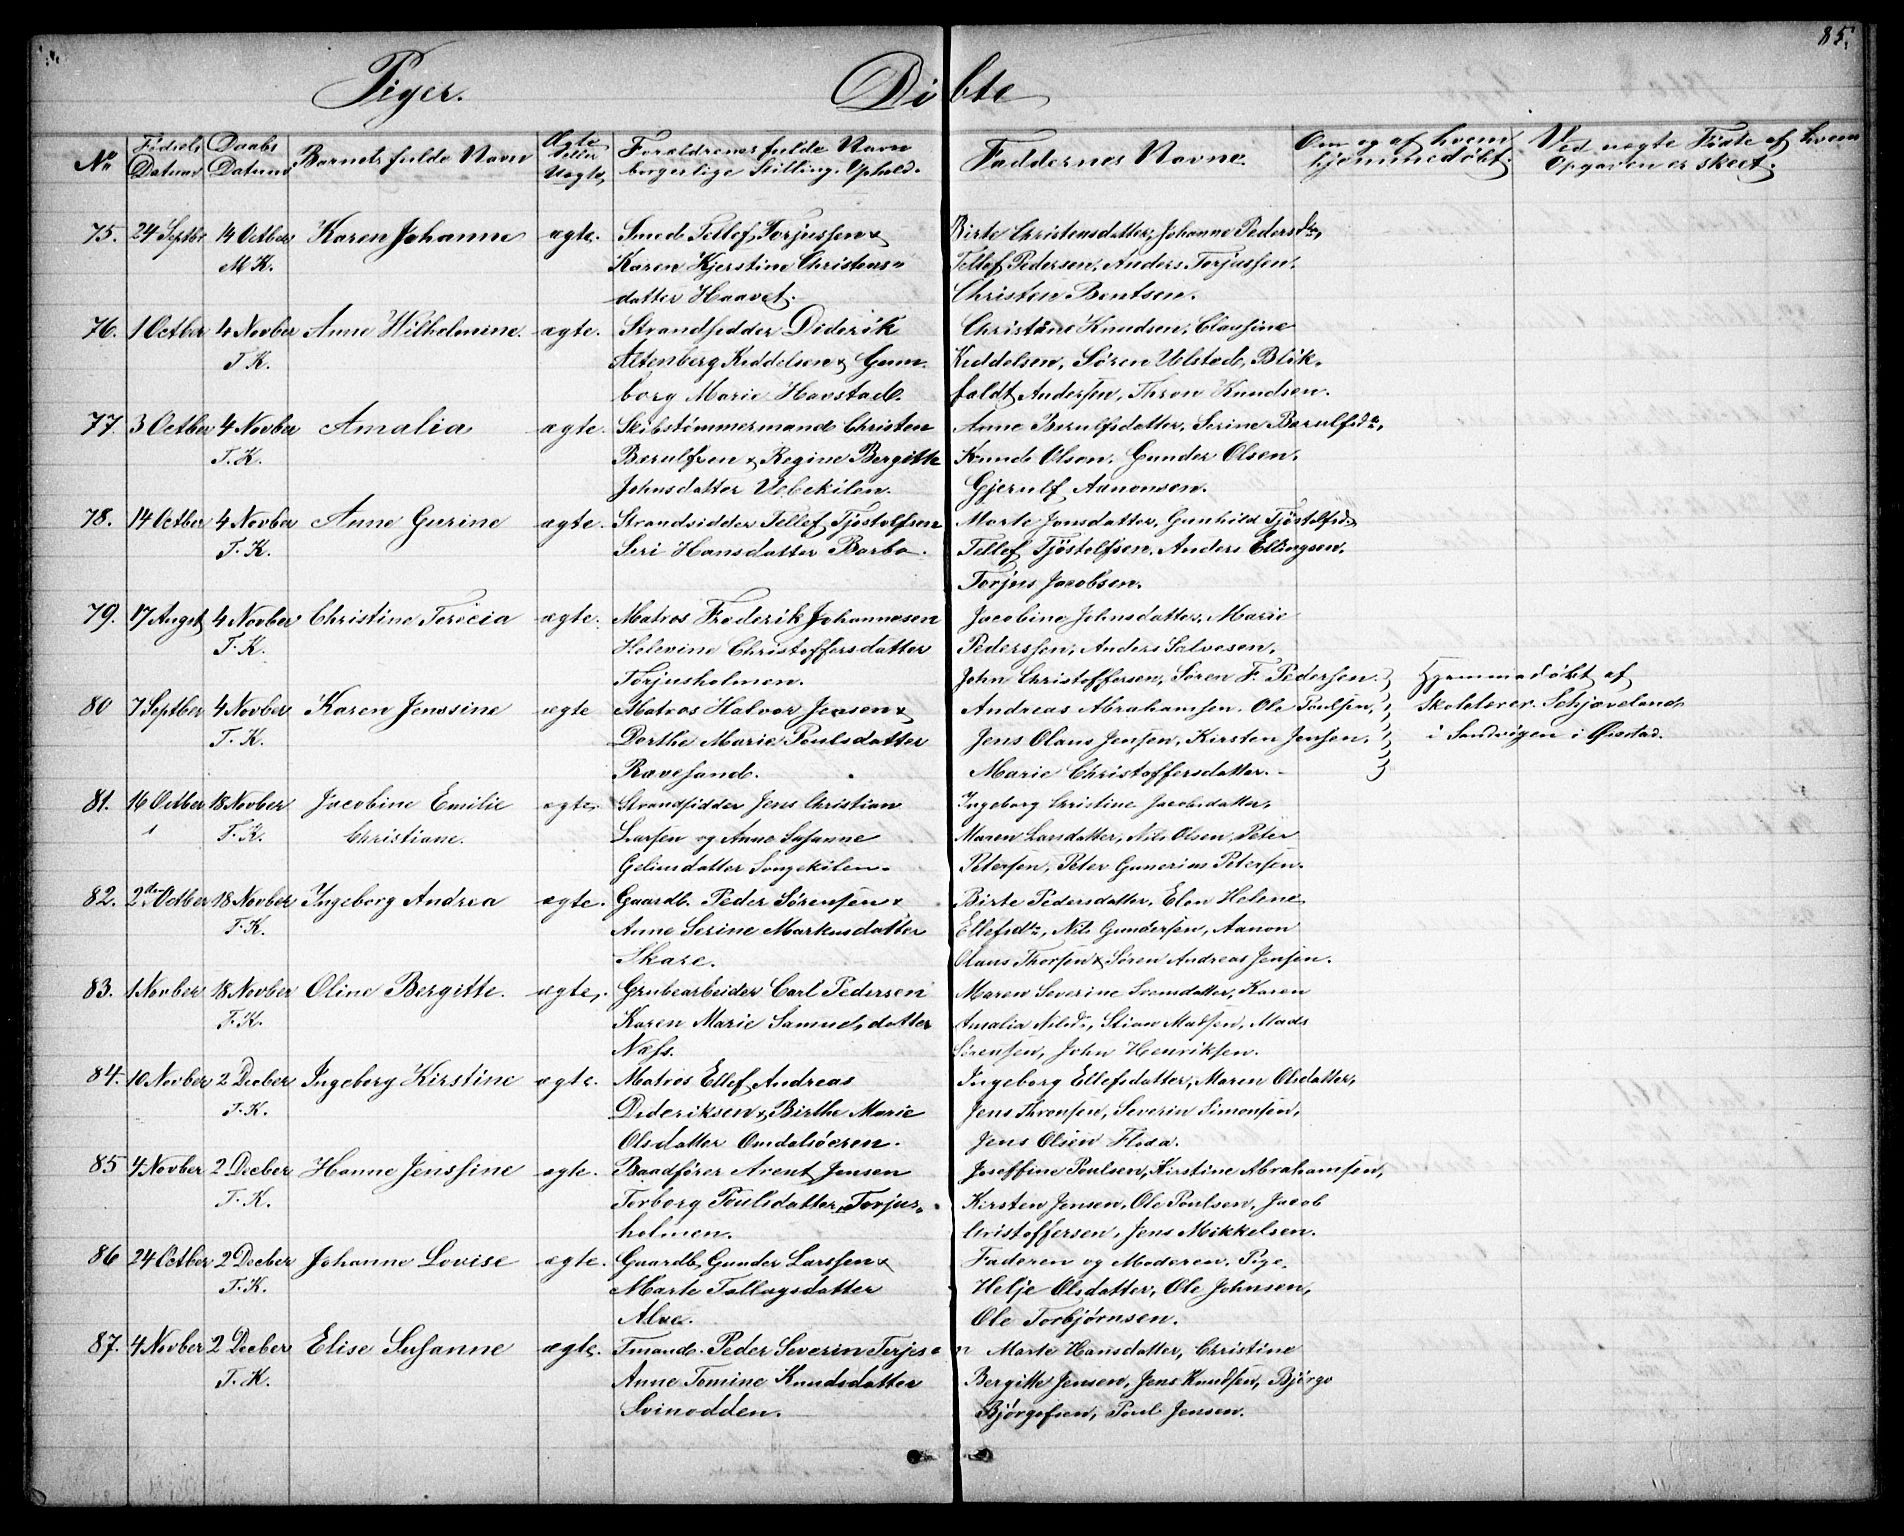 85.
Piger. Døbte
No Fødsels Datum Daabs Datum Barnets fulde Navn Ægte eller Uægte, Forældrenes fulde Navn borgerlige Stilling. Ophold. Faddernes Navne. Om og af hvem hjemmedøbt. Ved uægte Født af hvem Opgaven er skeet.
75. 24 Septbr 14 Octber Karen Johanne ægte. Smed Tellef Torjussen & Birte Christensdatter, Johanne Pedersdtr,
M K. Karen Kjerstine Christens- Tellef Pedersen, Anders Torjussen.
datter Haavet. Christen Bentsen.
76. 1 Octber 4 Novber Anne Wilhelmine. ægte. Strandsidder Diderik Christine Knudsen, Clausine
T. K. Altenberg Kiddelsen & Gun- Kiddelsen, Søren Ulstad, Blik-
borg Marie Havstad. faldt Andersen, Thron Knudsen.
77. 3 Octber 4 Novber Amalia ægte. Skibstømmermand Christen Anne Berulfsdatter, Serine Berulfsdtr,
T. K. Berulfsen & Regine Bergitte Knud Olsen, Gunder Olsen.
Johnsdatter Uebekilen. Gjerulf Aanonsen.
78. 14 Octber 4 Novber Anne Gurine ægte. Strandsidder Tellef Tjøstolfsen Marte Jonsdatter, Gunhild Tjøstolfsd.
T. K. Seri Hansdatter Barbo. Tellef Tjøstolfsen, Anders Ellingsen.
Torjus Jacobsen.
79. 17 Augst 4 Novber Christine Tericia ægte. Matros Frederik Johannesen Jacobine Johnsdatter, Marie
T. K. Helevine Christoffersdatter Pederssen, Anders Salvesen,
Torjusholmen. John Christoffersen, Søren F. Pedersen. Hjemmedøbt af
80 7 Septber 4 Novber Karen Jenssine ægte Matros Halvor Jensen & Andreas Abrahamsen. Ole Poulsen, Skolelærer Schjæveland
T. K. Dorthe Marie Poulsdatter Jens Olaus Jensen, Kirsten Jensen. i Sandvigen i Øiestad.
Rævesand. Marie Christoffersdatter.
81. 16 Octber 18 Novber Jacobine Emilie ægte. Strandsidder Jens Christian Ingeborg Christine Jacobsdatter,
T. K. Christiane. Larsen og Anne Susanne Maren Larsdatter, Nils Olsen, Peter
Geliusdatter Songekilen. Petersen, Peter Gunerius Petersen.
82. 2den Octber 18 Novber Ingeborg Andrea ægte. Gaardb. Peder Sørensen & Birte Pedersdatter, Elen Helene
T. K. Anne Serine Markusdatter Ellefsdtr, Nils Gundersen, Aanon
Skare. Olaus Thorsen & Søren Andreas Jensen.
83. 1 Novber 18 Novber Oline Bergitte. ægte. Grubearbeider Carl Pedersen Maren Severine Svensdatter, Karen
T. K. Karen Marie Samuelsdatter Amalia Nilsd., Stian Madsen, Mads
Næss. Sørensen, John Henriksen.
84. 10 Novber 2 Decber Ingeborg Kirstine ægte. Matros Ellef Andreas Ingeborg Ellefsdatter, Maren Olsdatter,
T. K. Dideriksen & Birthe Marie Jens Thronsen, Severin Simonsen,
Olsdatter Omdalsøeren. Jens Olsen Flosa.
85 4 Novber 2 Decber Hanne Jenssine ægte. Baadfører Arent Jensen Joseffine Poulsen, Kirstine Abrahamsen,
T. K. Torborg Poulsdatter, Torjus- Kirsten Jensen, Ole Poulsen, Jacob
holmen. Cristoffersen, Jens Mikkelsen.
86 24 Octber 2 Decber Johanne Lovise ægte. Gaardb. Gunder Larssen & Faderen og Moderen. Pige.
T. K. Marte Tallagsdatter Helje Olsdatter, Ole Johnsen,
Alve. Ole Torbjørnsen.
87. 4 Novber 2 Decber Elise Susanne ægte. Tmand. Peder Severin Terjesen Marte Hansdatter, Christine
T. K. Anne Tomine Knudsdatter Bergitte Jensen, Jens Knudsen, Bjørgo
Svinodden. Bjørgofsen, Poul Jensen.